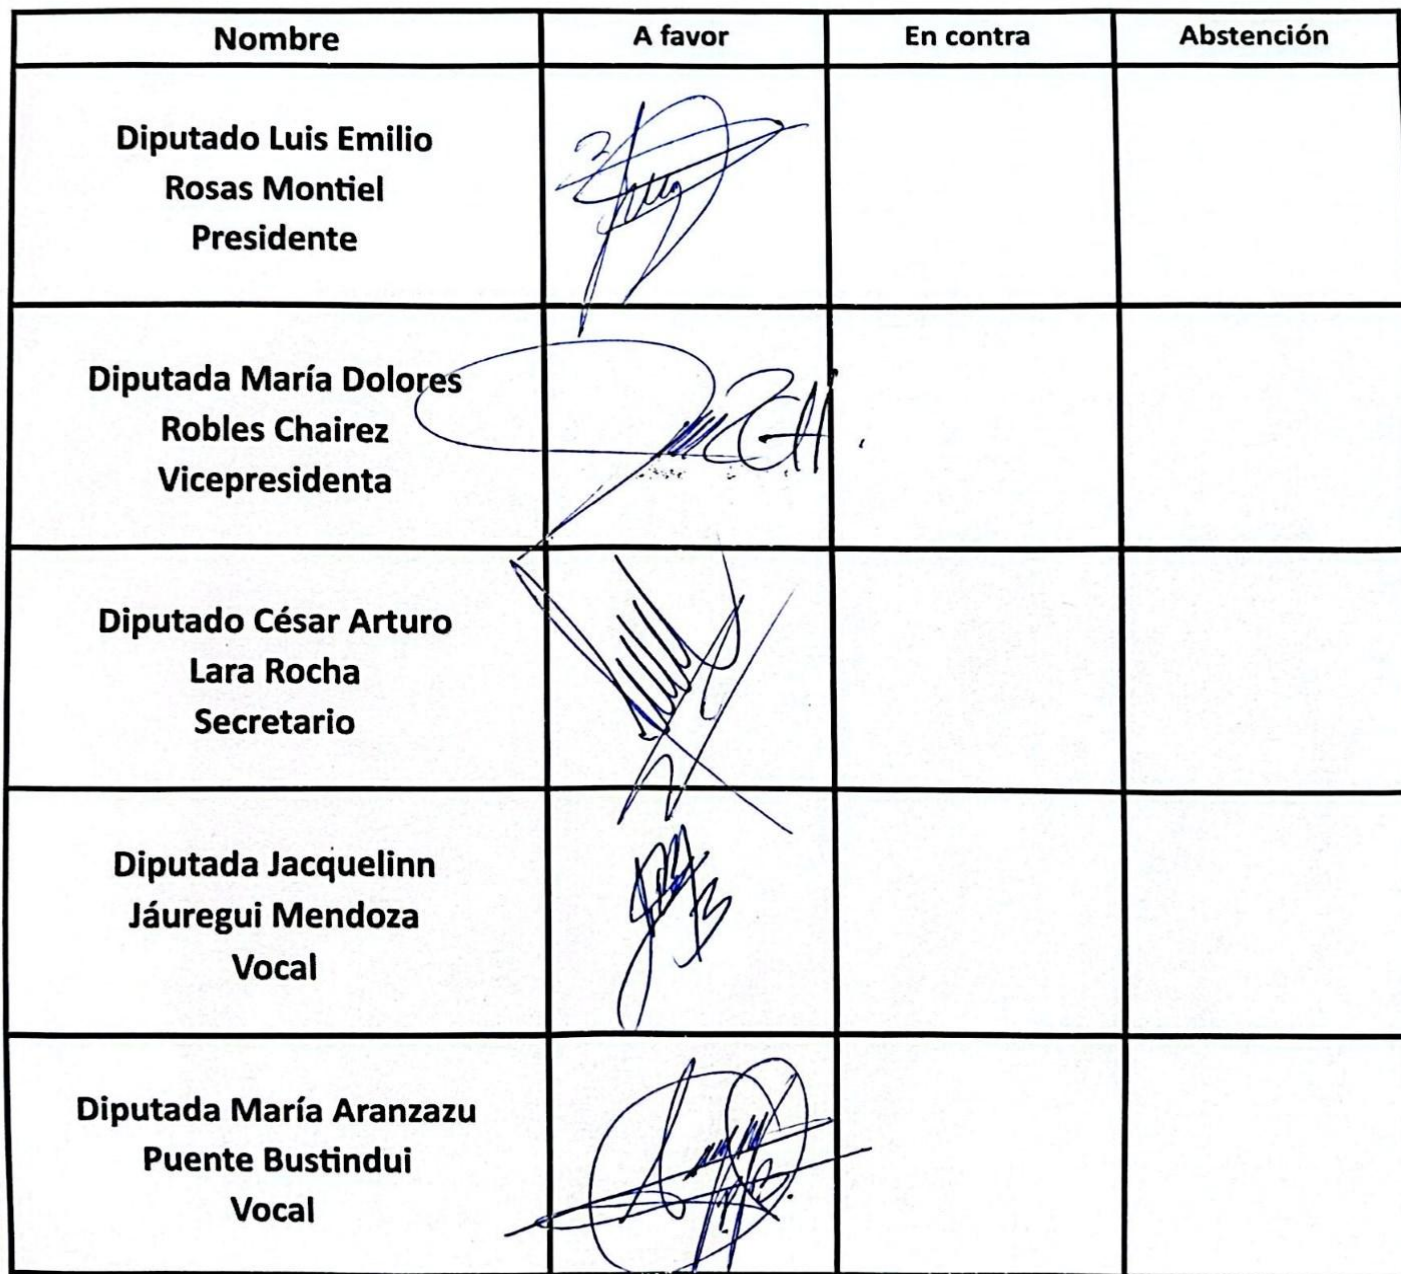 Nombre A favor En contra Abstención
Diputado Luis Emilio
Rosas Montiel
Presidente
Diputada María Dolores
Robles Chairez
Vicepresidenta
Diputado César Arturo
Lara Rocha
Secretario
Diputada Jacquelinn
Jáuregui Mendoza
Vocal
Diputada María Aranzazu
Puente Bustindui
Vocal